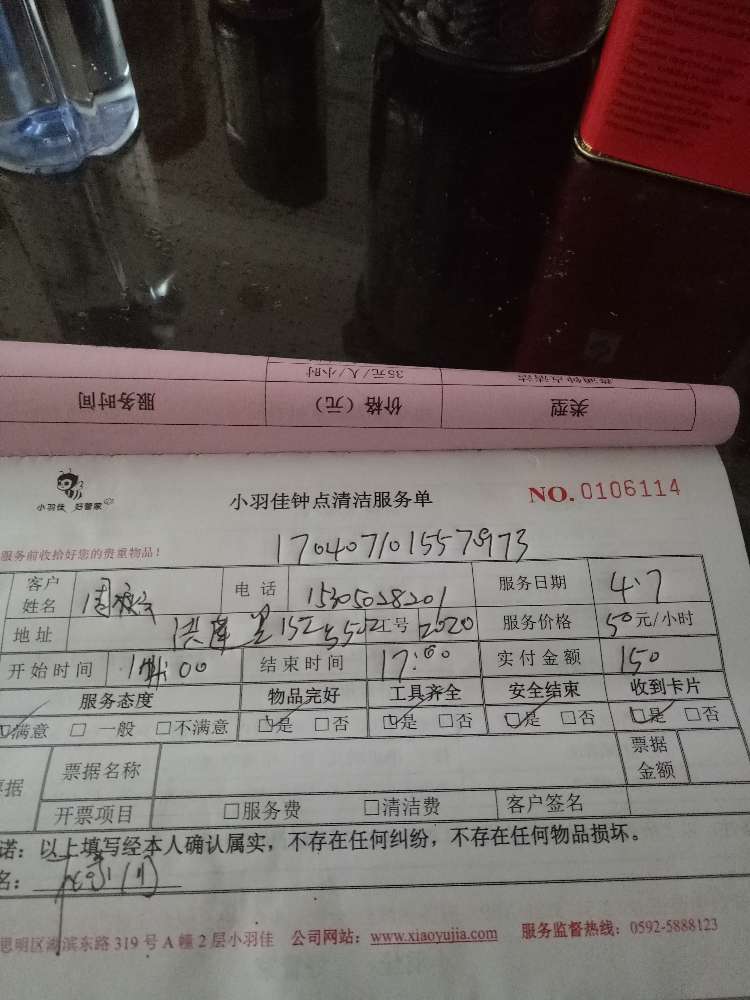 35元/人/小时
类型 价格（元） 服务时间
小羽佳 好管家
小羽佳钟点清洁服务单 NO.0106114
服务前收给好您的贵重物品！
17040710155
客户姓名 电话 15305028201 服务日期 4.7
地址 工号 2020 服务价格 50元/小时
开始时间 14:00 结束时间 17:00 实付金额 150
服务态度 物品完好 工具齐全 安全结束 收到卡片
满意 □ 一般 □不满意 □是 □否 □是 □否 □是 □否 □是 □否
据 票据名称 票据金额
开票项目 □服务费 □清洁费 客户签名
诺：以上填写经本人确认属实，不存在任何纠纷，不存在任何物品损坏。
名：
思明区湖滨东路 319 号 A 幢 2 层小羽佳 公司网站：www.xiaoyujia.com 服务监督热线：0592-5888123